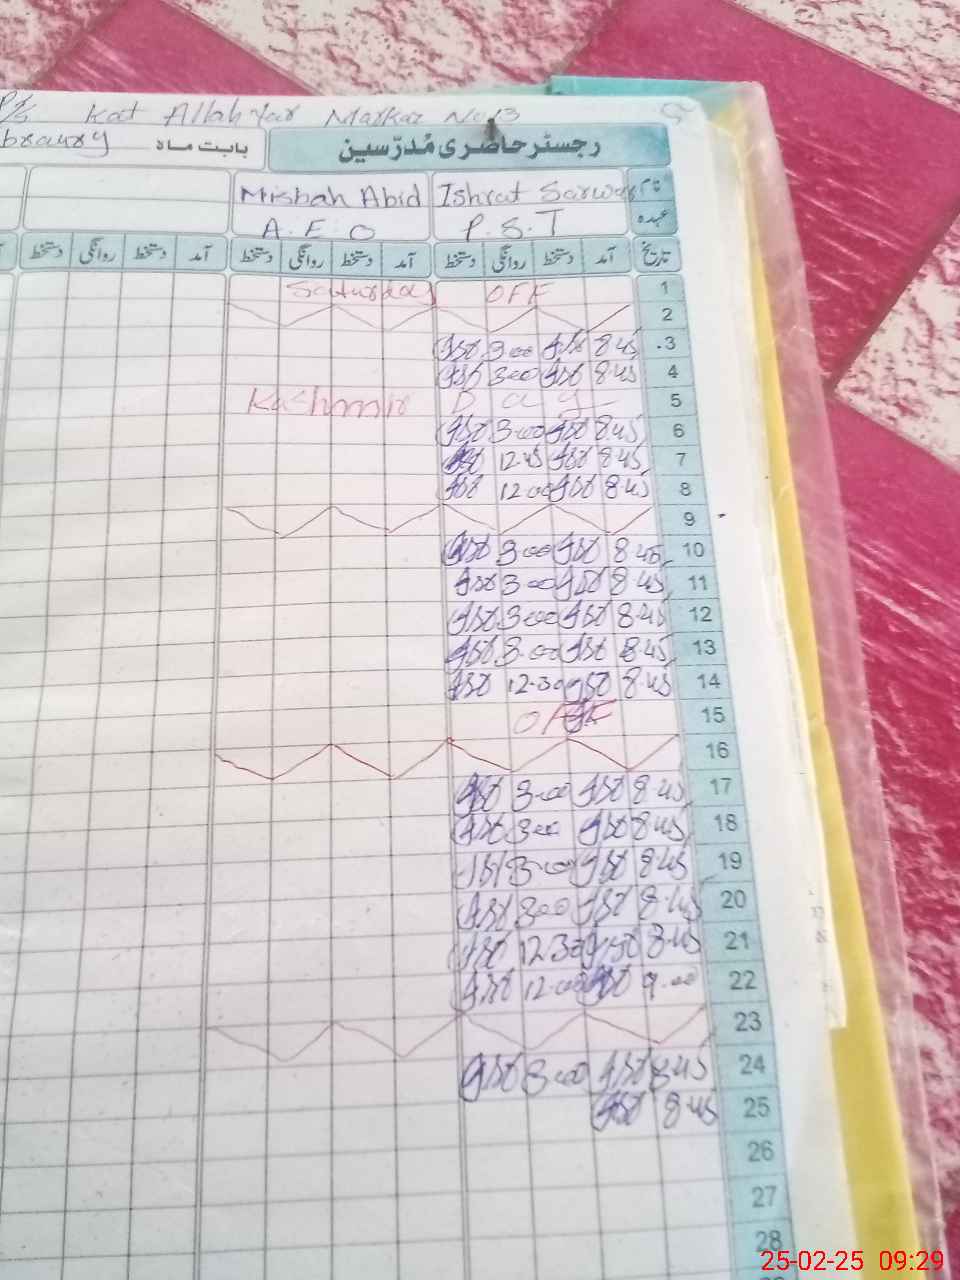 P/s Kot Allah Yar Markaz No 13
رجسٹر حاضری مُدرّسین
بابت ماہ
braury
نام Ishrat Sarwar Misbah Abid
عہدہ P.S.T A.E.O
تاریخ آمد دستخط روانگی دستخط آمد دستخط روانگی دستخط آمد دستخط روانگی دستخط
1 Saturday OFF
2
3 8.45 3.00
4 8.45 3.00
5 Kashmir Day
6 8.45 3.00
7 8.45 12.45
8 8.45 12.00
9
10 8.45 3.00
11 8.45 3.00
12 8.45 3.00
13 8.45 3.00
14 8.45 12.30
15 OFF
16
17 8.45 3.00
18 8.45 3.00
19 8.45 3.00
20 8.45 3.00
21 8.45 12.30
22 9.00 12.00
23
24 8.45 3.00
25 8.45
26
27
28
25-02-25 09:29